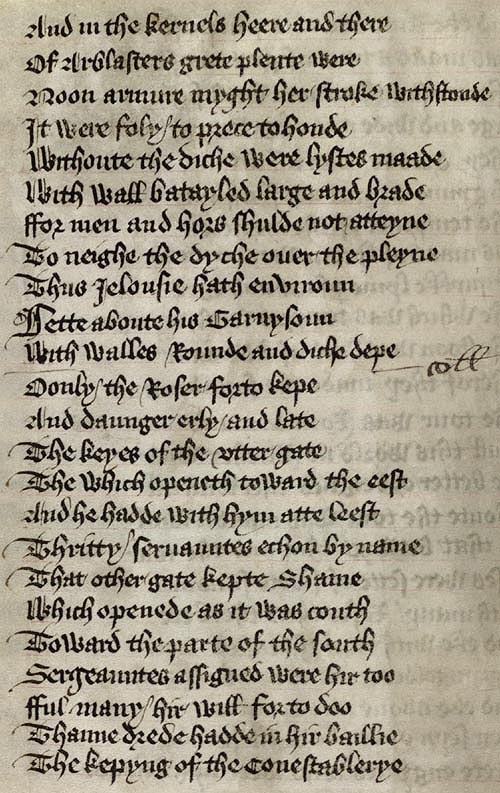 And in the kernels heere and there
Of Arblasters grete plente were
Noon armure myght her stroke withstonde
It were foly / to prece to honde
Withoute the diche were lystes maade
With wall batayled large and brade
ffor men and hors shulde not atteyne
To neighe the dyche ouer the pleyne
Thus Jelousie hath enviroun
Sette aboute his Garnysoun
With walles Rounde and diche depe
Oonly / the Roser forto kepe
And daunger erly / and late
The keyes of the vtter gate
The which openeth toward the eest
And he hadde with hym atte leest
Thritty / seruauntes echon by name
That other gate kepte Shame
Which openede as it was couth
Toward the parte of the south
Sergeauntes assigned were hir too
fful many / hir will forto doo
Thanne drede hadde in hir baillie
The kepyng of the Conestablerye